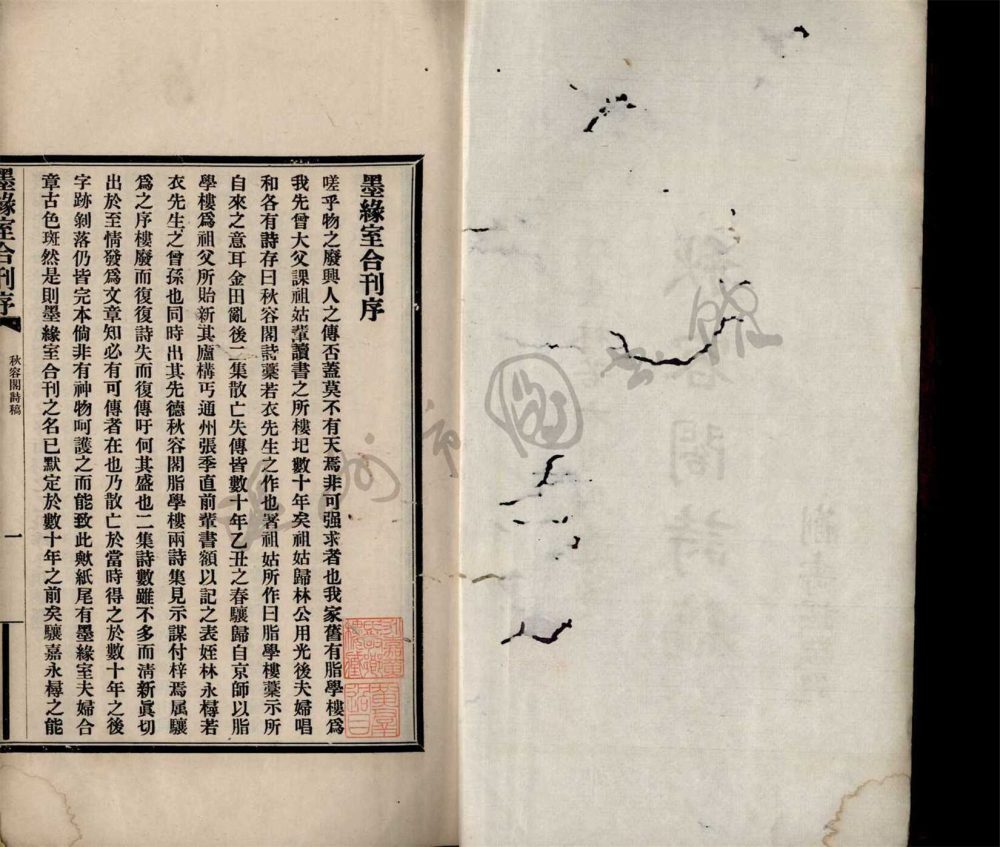 墨緣室合刊序
嗟乎物之廢興人之傳否蓋莫不有天焉非可强求者也我家舊有脂學樓爲
我先曾大父課祖姑輩讀書之所樓圮數十年矣祖姑歸林公用光後夫婦唱
和各有詩存曰秋容閣詩藁若衣先生之作也署祖姑所作曰脂學樓藁示所
自來之意耳金田亂後二集散亡失傳皆數十年乙丑之春驤歸自京師以脂
學樓爲祖父所貽新其廬構丐通州張季直前輩書額以記之表姪林永樳若
衣先生之曾孫也同時出其先德秋容閣脂學樓兩詩集見示謀付梓焉属驤
爲之序樓廢而復復詩失而復傳吁何其盛也二集詩數雖不多而淸新眞切
出於至情發爲文章知必有可傳者在也乃散亡於當時得之於數十年之後
字跡剝落仍皆完本倘非有神物呵護之而能致此歟紙尾有墨緣室夫婦合
章古色斑然是則墨緣室合刊之名已默定於數十年之前矣驤嘉永樳之能
墨緣室合刊序
秋容閣詩稿
一
溫州市圖